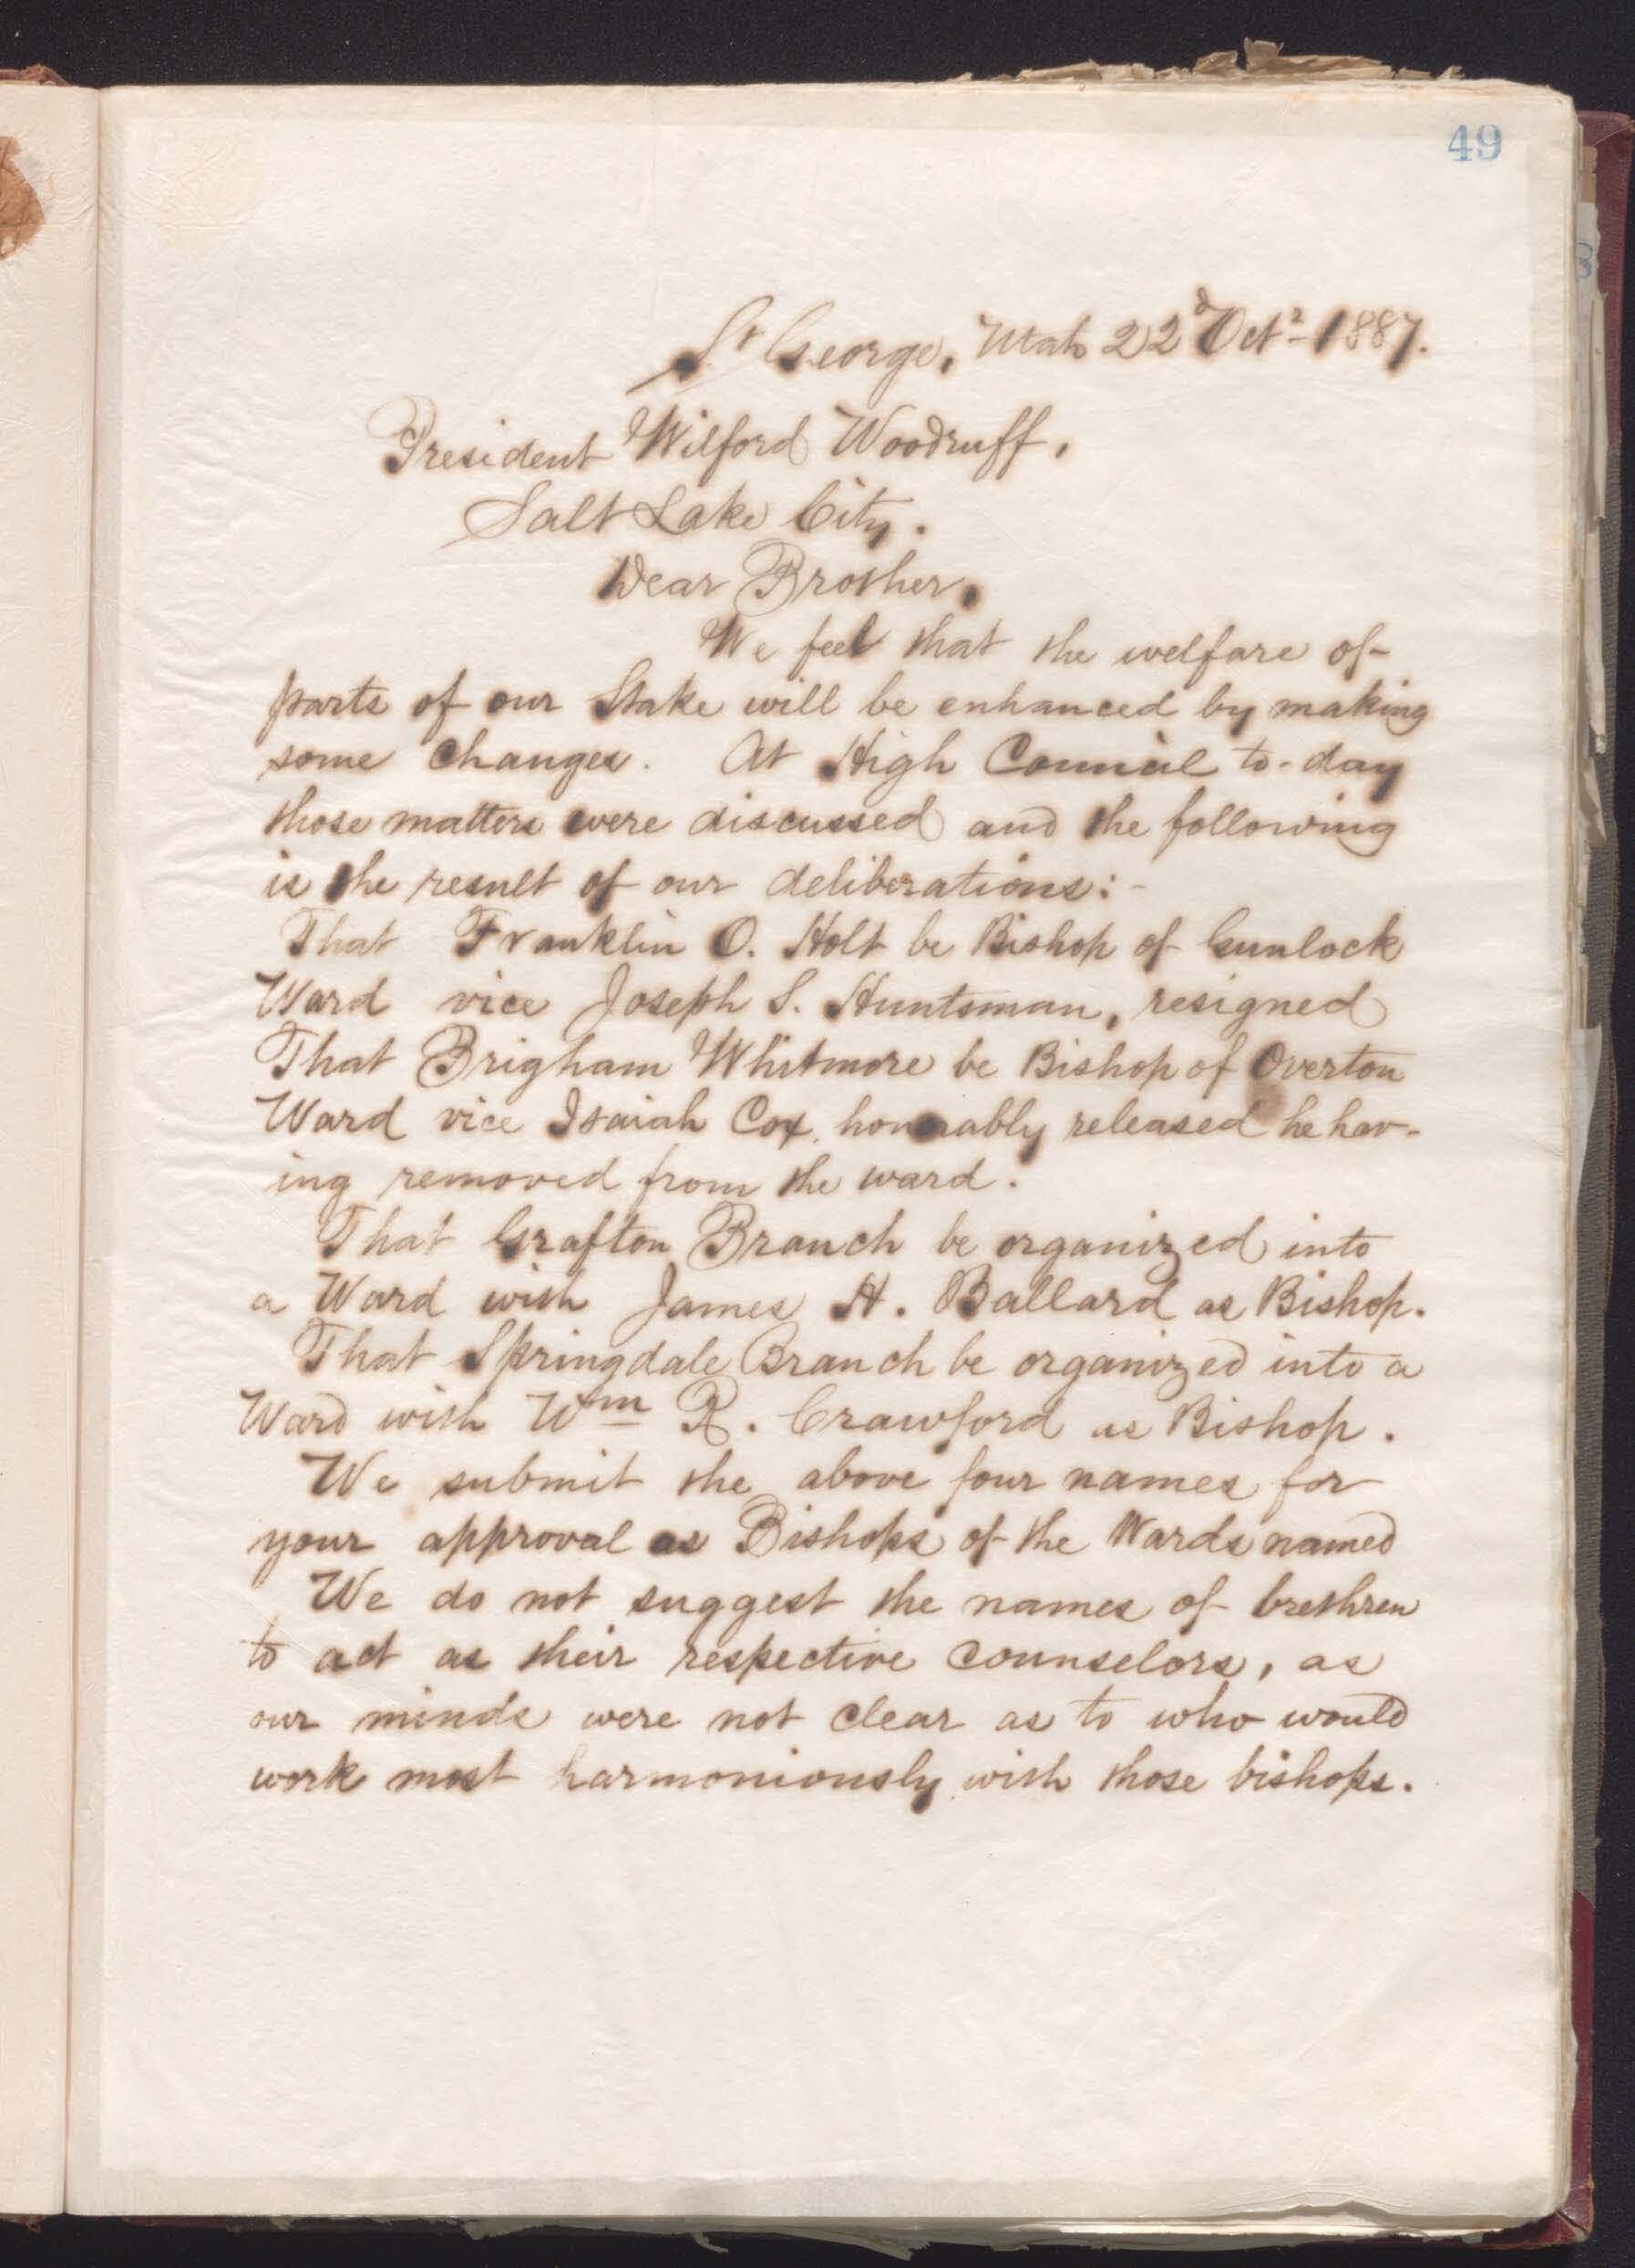 49
St George, Utah 22d Octr 1887.
President Wilford Woodruff,
Salt Lake City.
Dear Brother,
We feel that the welfare of
parts of our Stake will be enhanced by making
some changes. At High Council to-day
those matters were discussed and the following
is the result of our deliberations:-
That Franklin O. Holt be Bishop of Gunlock
Ward vice Joseph S. Huntsman, resigned
That Brigham Whitmore be Bishop of Overton
Ward vice Isaiah Cox, honorably released he hav-
ing removed from the ward.
That Grafton Branch be organized into
a Ward with James H. Ballard as Bishop.
That Springdale Branch be organized into a
Ward with Wm R. Crawford as Bishop.
We submit the above four names for
your approval as Bishops of the Wards named
We do not suggest the names of brethren
to act as their respective counselors, as
our minds were not clear as to who would
work most harmoniously with those bishops.